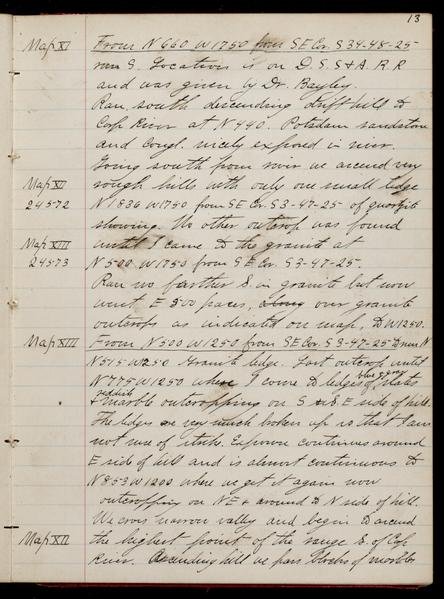 13
Map XI From N660 W1750 from SE Cor. S 34-48-25
run S. Location is on D.S.S & A. R.R
and was given by Dr. Bayley.
Ran south descending drift hill to
Carp River at N440. Potsdam sandstone
and Congl. nicely exposed in river.
Going south from river we ascend very
Map XII rough hills with only one small ledge
24572 N1836 W1750 from SE Cor S3-47-25 of quartzite
showing. No other outcrop was found
Map XIII until I came to the granite at
24573 N500 W1750 from SE Cor. S3-47-25.
Ran no farther S. in granite but now
went E 500 paces, along over granite
outcrops as indicated on map, to W1250.
Map XIII From N500 W1250 from SE Cor. S3-47-25 I run N
N515 W1250 Granite ledge. Last outcrop until
N775 W1250 where I come to ledges of blue gray slates
& reddish marble outcropping on S & S.E side of hill.
The ledges are very much broken up so that I am
not sure of strike. Exposure continues around
E side of hill and is almost continuous to
N853 W1200 where we get it again now
outcropping on NE & around to N side of hill.
We cross narrow valley and begin to ascend
Map XII the highest point of the range S. of Carp
River. Ascending hill we pass blocks of marble